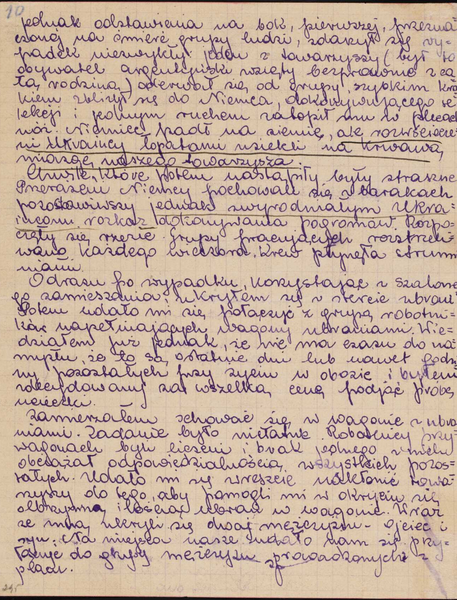 10
jednak odstawienia na bok, pierwszej, przezna-
czonej na śmierć grupy ludzi, zdarzył się wy-
padek niezwykły. Jeden z towarzyszy (był to
obywatel argentyński wzięty bezprawnie z ca-
łą rodziną) oderwał się od grupy, szybkim kro-
kiem zbliżył się do Niemca, dokonywującego se-
lekcji i jednym ruchem zatopił mu w plecach
nóż. Niemiec padł na ziemię, ale rozwścieczeni
Ukraińcy łopatami usiekli na krwawą
miazgę naszego towarzysza.
Chwile, które potem nastąpiły były straszne.
Przerażeni Niemcy pochowali się w barakach
pozostawiwszy jednak zwyrodniałym Ukra-
ińcom rozkaz dokonywania pogromów. Rozpo-
częły się rzezie. Grupy pracujących rozstrzeli-
wano każdego wieczora. Krew płynęła strum-
mieniami.
Odrazu po wypadku, korzystając z szalone-
go zamieszania, ukryłem się w stercie ubrań.
Potem udało mi się połączyć z grupą robotni-
ków napełniających wagony ubraniami. Wie-
działem już jednak, że nie ma czasu do na-
mysłu, że to są ostatnie dni lub nawet godzi-
ny pozostałych przy życiu w obozie i byłem
zdecydowany za wszelką cenę podjąć próbę
ucieczki.
Zamierzałem schować się w wagonie z ubra-
niami. Zadanie było niełatwe. Robotnicy przy
wagonach byli liczeni i brak jednego z nich
obciążał odpowiedzialnością wszystkich pozos-
tałych. Udało mi się wreszcie nakłonić towa-
rzyszy do tego, aby pomogli mi w okryciu się
olbrzymią ilością ubrań w wagonie. Wraz
ze mną ukryli się dwaj mężczyźni - ojciec i
syn. Na miejsca nasze udało nam się przy-
łączyć do grupy mężczyzn sprowadzonych z
placu.